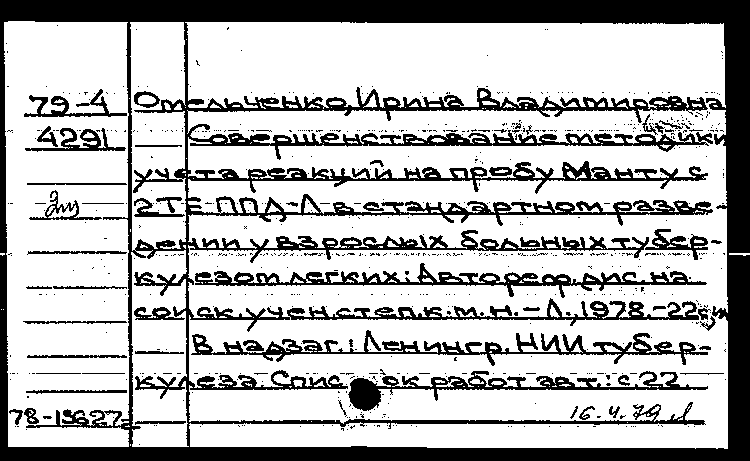 79-4 Омельченко, Ирина Владимировна
4291 Совершенствование методики
учета реакций на пробу Манту с
2ТЕ ППД-Л в стандартном разве-
дении у взрослых больных тубер-
кулезом легких: Автореф. дис. на
соиск. учен. степ. к. м. н. - Л., 1978. - 22 см
В надзаг.: Ленингр. НИИ тубер-
кулеза. Список работ авт.: с. 22.
16.4.79